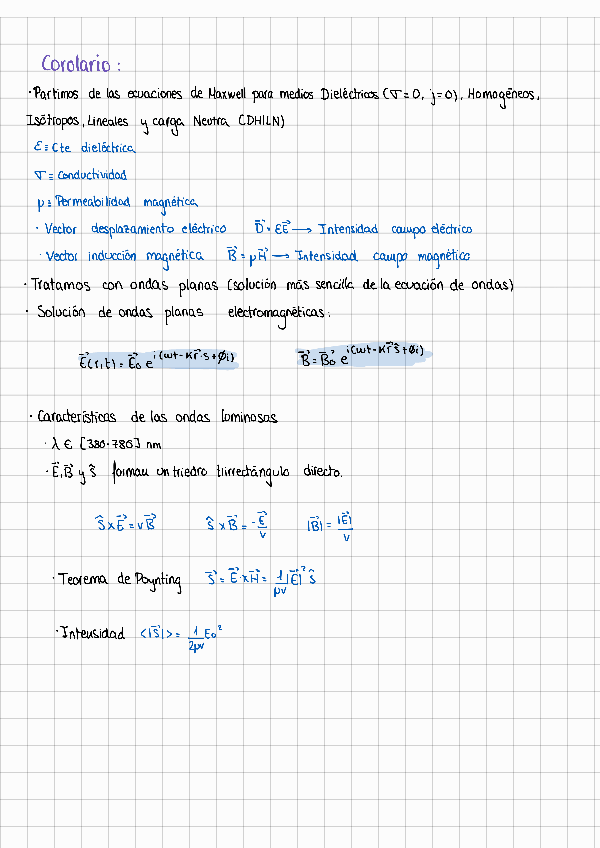 Corolario:
· Partimos de las ecuaciones de Maxwell para medios Dieléctricos (σ=0, j=0), Homogéneos,
Isótropos, Lineales y carga Neutra (DHILN)
ε ≡ Cte dieléctrica
σ ≡ Conductividad
μ ≡ Permeabilidad magnética
· Vector desplazamiento eléctrico D⃗ = εE⃗ → Intensidad campo eléctrico
· Vector inducción magnética B⃗ = μH⃗ → Intensidad campo magnético
· Tratamos con ondas planas (solución más sencilla de la ecuación de ondas)
· Solución de ondas planas electromagnéticas:
E⃗(r,t) = E⃗₀ e^i(ωt-Kr⃗·s+φi) B⃗ = B⃗₀ e^i(ωt-Kr⃗ŝ+φi)
· Características de las ondas luminosas
· λ ∈ [380-780] nm
· E⃗, B⃗ y ŝ forman un triedro trirrectángulo directo.
ŝ x E⃗ = vB⃗ ŝ x B⃗ = -E⃗/v |B⃗| = |E⃗|/v
· Teorema de Poynting S⃗ = E⃗ x H⃗ = 1/μv |E⃗|² ŝ
· Intensidad <|S⃗|> = 1/2μv E₀²